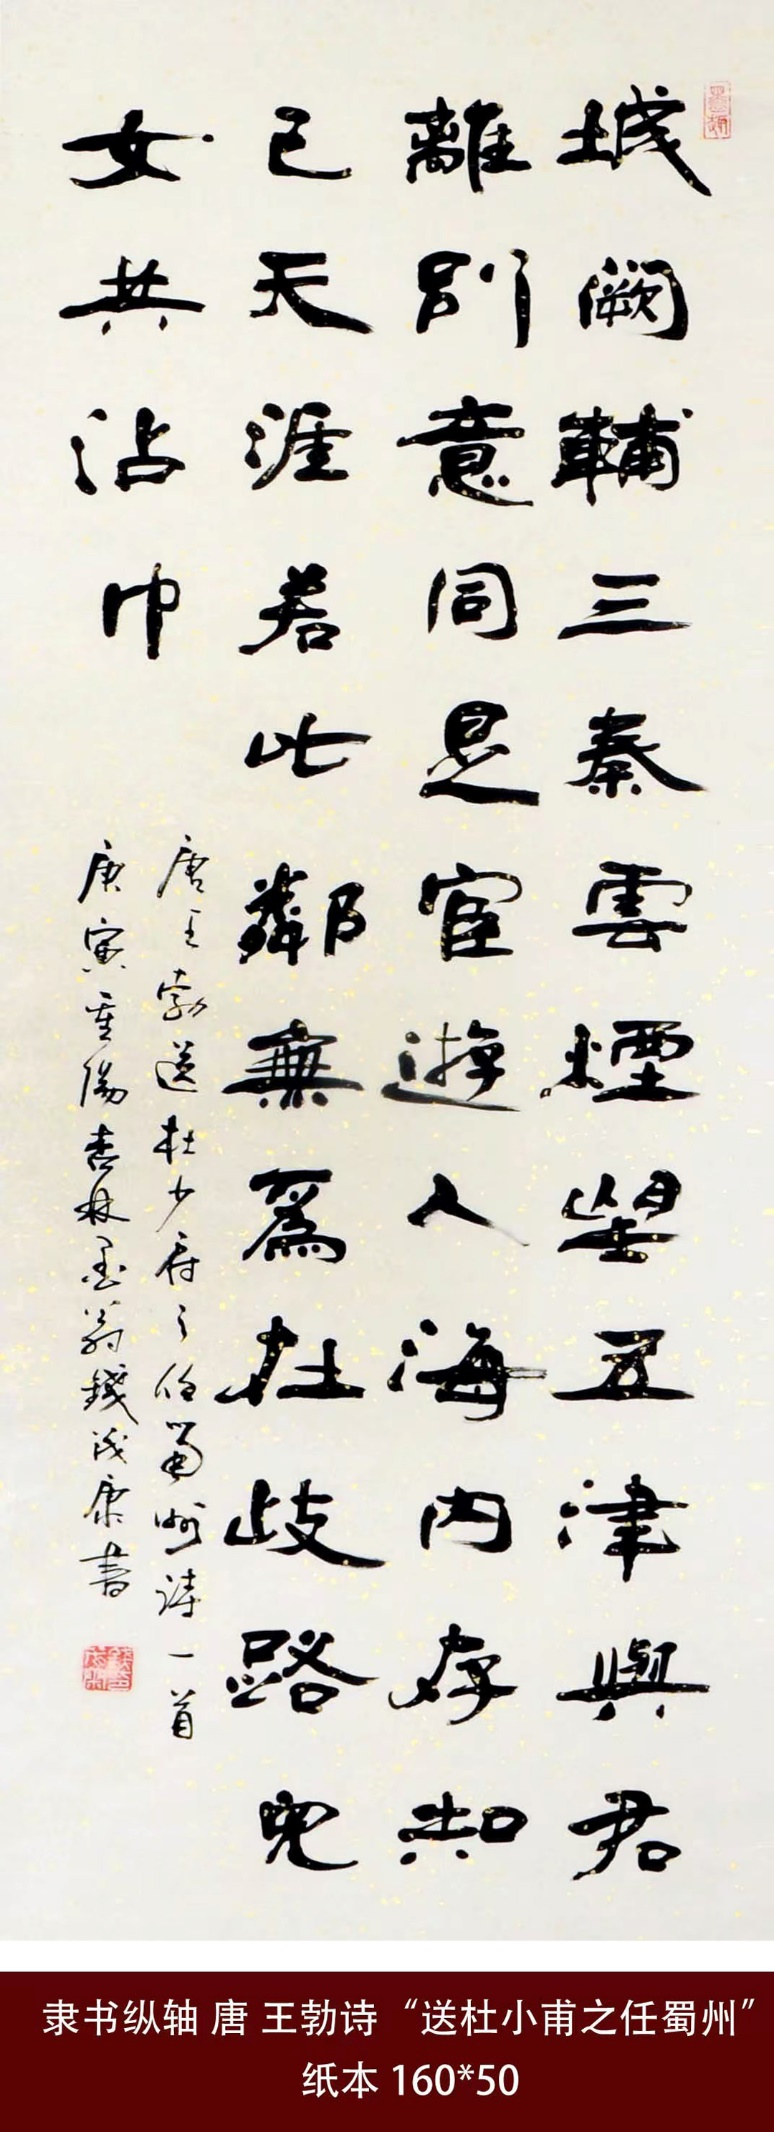 城闕輔三秦雲煙望五津與君
離別意同是宦遊人海内存知
己天涯若比鄰無爲在歧路兒
女共沾巾
唐王勃送杜少府之任蜀州詩一首
庚寅重陽杏林墨翁錢茂康書
隶书纵轴 唐 王勃诗“送杜小甫之任蜀州”
纸本 160*50